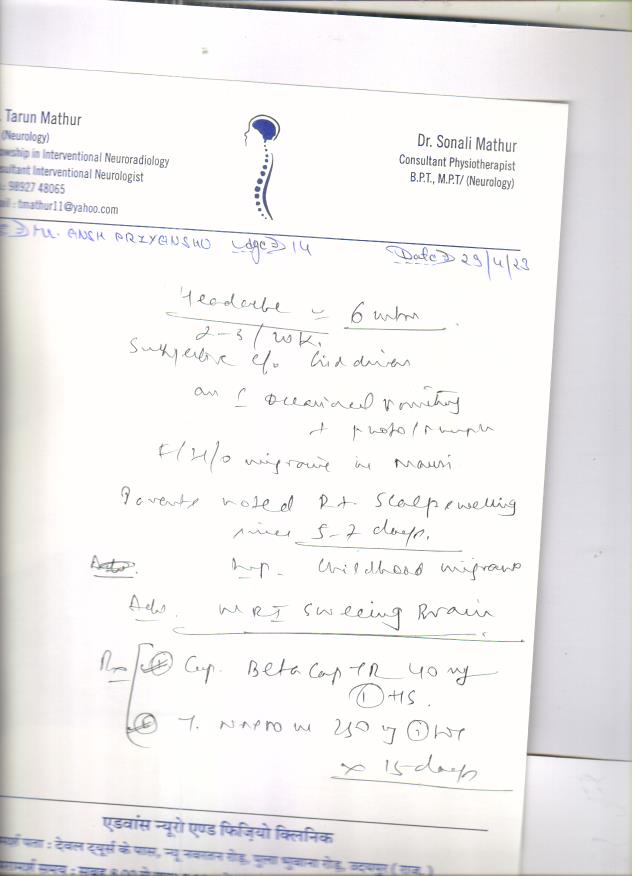 Tarun Mathur
(Neurology)
wship in Interventional Neuroradiology
sultant Interventional Neurologist
: 98927 48065
ail : tmathur11@yahoo.com
Dr. Sonali Mathur
Consultant Physiotherapist
B.P.T., M.P.T/ (Neurology)
Mr. ANSH PRIYANSHU Age⇒ 14
Date⇒ 29/4/23
Headache 6
2-3 / wk.
Subjective c/o
occasional vomiting
+ photo/
F/H/o migraine in
Parents noted Rt. Scalp swelling
since 5-7 days.
Imp. Childhood migraine
Adv. MRI Screening Brain
Rx Cap. Beta Cap TR 40 mg
① HS.
T. 250 ①
x 15 days
एडवांस न्यूरो एण्ड फिजियो क्लिनिक
पता : देवल ट्यूर्स के पास, न्यू नवरतन रोड, पुला भुवाना रोड, उदयपुर ( राज. )
समय : सुबह